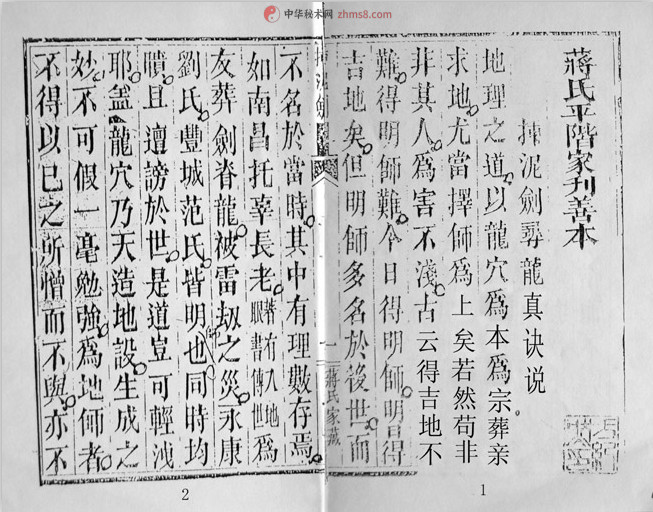 中华秘术网 zhms8.com
蔣氏平階家刋善本
揀泥劍尋龍真诀说
地理之道以龍穴爲本爲宗葬亲
求地尤當擇师爲上矣若然苟非
非其人爲害不淺古云得吉地不
難得明師難今日得明師明日得
吉地矣但明师多名於後世而
一
蔣氏家藏
不名於當時其中有理數存焉
如南昌托辜長老著有入地眼書傳世爲
友葬劍脊龍被雷刼之災永康
劉氏豐城范氏皆明师也同時均
瞔且遭謗於世是道豈可輕洩
耶盖龍穴乃天造地設生成之
妙不可假一毫勉強爲地师者
不得以已之所憎而不與亦不
2
1